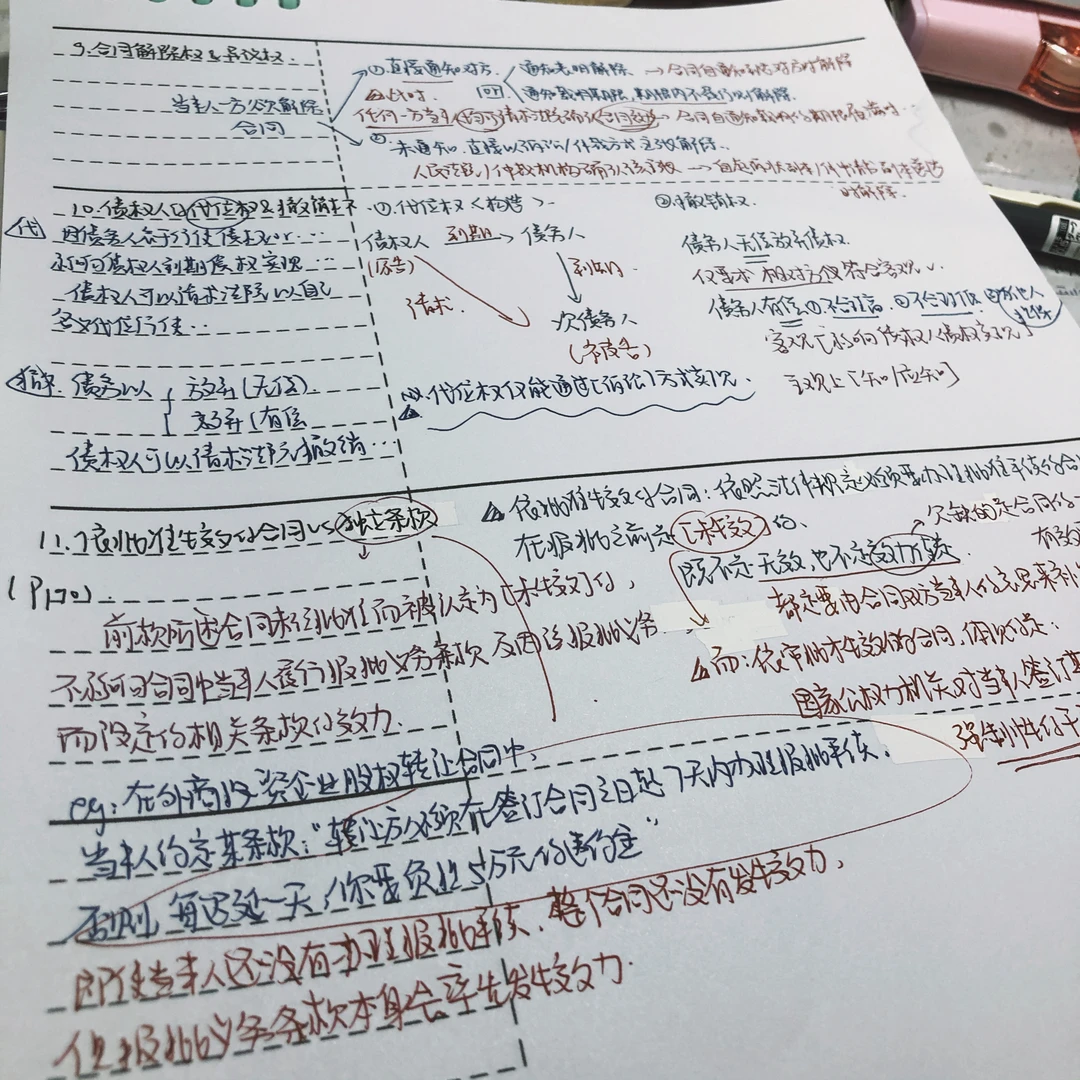 9.合同解除权&异议权.
当事人一方欲解除
合同
①.直接通知对方.
通知表明解除 → 合同自通知到达对方时解除
通知载明期限,期限内不履行则解除.
△此时.
任何一方当事人均可请求法院确认合同效力 → 合同自通知载明的期限届满时.
②.未通知.直接以诉讼/仲裁方式主张解除.
人民法院/仲裁机构确认该主张 → 自起诉状副本/仲裁申请书副本送达
时解除.
10.债权人の代位权&撤销权
①.代位权<构造>.
②撤销权.
代
因债务人怠于行使债权or…
影响债权人到期债权实现…
债权人可以请求法院以自己
名义代位行使…
债权人 到期→ 债务人
(原告)
到期.
请求.
次债务人
(被告)
※.代位权仅能通过[诉讼]方式实现.
债务人无偿放弃债权.
仅要求相对方仅符合客观✓.
客观上影响债权人债权实现]
主观上[知/应知]
撤. 债务人以
放弃(无偿).
(有偿
债权人可以请求法院撤销…
11.须批准生效的合同vs独立条款
(P170).
前款所述合同未经批准而被认定为[未生效]的,
不影响合同中当事人履行报批义务条款及因该报批义务
而设定的相关条款的效力.
△.依批准生效的合同:依照法律规定必须要办理批准手续的合
在报批之前是[未生效]的.
既不是无效,也不是效力待定.
欠缺的是合同的
有效
都是要由合同双方当事人的意思来补
△而:依审批才生效的合同,体现的是:
国家公权力机关对当事人签订
强制性的干
eg:在外商投资企业股权转让合同中,
当事人约定某条款:"转让方必须在签订合同之日起7天内办理报批手续,
否则,每迟延一天,你要负担5万元的违约金"
即使当事人还没有办理报批手续,整个合同还没有发生效力,
但报批义务条款本身会产生发生效力.